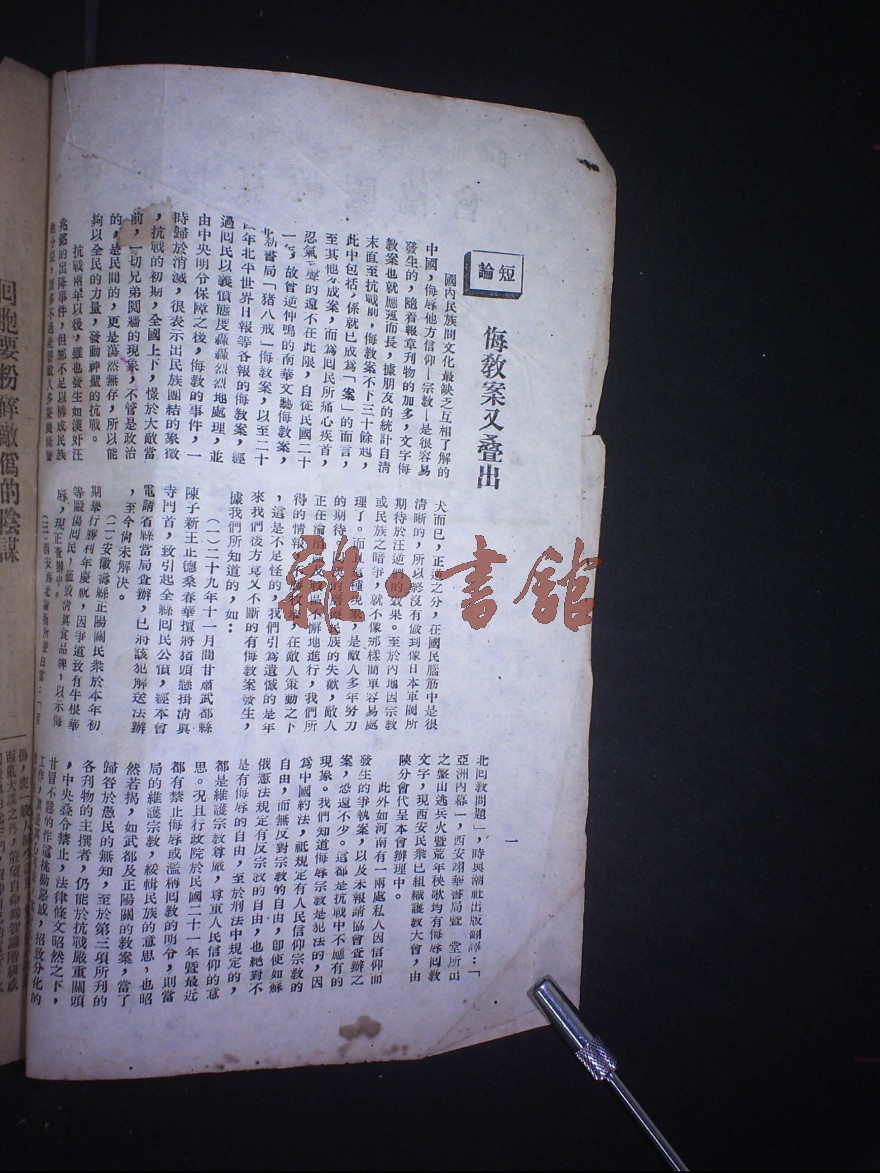 短論
侮敎案又叠出
國內民族間文化最缺乏互相了解的
中國，侮辱他方信仰—宗敎—是很容易
發生的，隨着報章刊物的加多，文字侮
敎案也就應運而長，據朋友的統計自淸
末直至抗戰前，侮敎案不下三十餘起，
此中包括，係就已成爲「案」的而言，
至其他未成案，而爲囘民所痛心疾首，
忍氣呑聲的還不在此限，自從民國二十
一年，故曾逆仲鳴的南華文藝侮敎案，
北新書局「猪八戒」侮敎案，以至二十
四年北平世界日報等各報的侮敎案，經
過囘民以義憤態度轟轟烈烈地處理，並
由中央明令保障之後，侮敎的事件，一
時歸於消滅，很表示出民族團結的象徵
，抗戰的初期，全國上下，憬於大敵當
前，一切兄弟鬩牆的現象，不管是政治
的，是民間的，更是蕩然無存，所以能
夠以全民的力量，發動神聖的抗戰。
抗戰兩年以後，雖也發生如漢奸汪
兆銘的出降事件，但那不足以構成民族
犬而已，正逆之分，在國民腦筋中是很
淸晰的，所以終沒有做到像日本軍閥所
期待於汪逆們的效果。至於內地因宗敎
或民族之暗爭，就不像那樣簡單容易處
理了。而且這種現象，是敵人多年努力
的期待
民族的失歡，敵人
正在淪陷區及戰區不懈地進行，我們所
得的情報
，在敵人策動之下
，這是不足怪的，我們引爲遺憾的是年
來我們後方竟又不斷的有侮敎案發生，
據我們所知道的，如：
（一）二十九年十一月間甘肅武都縣
陳子新王正德桑春華擅將猪頭懸掛淸眞
寺門首，致引起全縣囘民公憤，經本會
電請省縣當局查辦，已將該犯解送法辦
，至今尙未解決。
（二）安徽壽縣正陽關民衆於本年初
期舉行勝利年慶祝，因爭道致有牛根華
等毆陽囘民，
淸眞食品牌，以示侮
辱，現正查辦中。
北囘敎問題」，時與潮社出版翻譯：「
亞洲內幕一，西安翊華書局暨　堂所出
之盤山逃兵火暨荒年秧歌均有侮辱囘敎
文字，現西安民衆已組織護敎大會，由
陝分會代呈本會辦理中。
此外如河南有一兩處私人因信仰而
發生的爭執案，以及未報請協會查辦之
案，恐還不少。這都是抗戰中不應有的
現象。我們知道侮辱宗敎是犯法的，因
爲中國約法，祇規定有人民信仰宗敎的
自由，而無反對宗敎的自由，卽便如蘇
俄憲法規定有反宗敎的自由，也絕對不
是有侮辱的自由，至於刑法中規定的，
都是維護宗敎尊嚴，尊重人民信仰的意
思。況且行政院於民國二十一年暨最近
都有禁止侮辱或濫稱囘敎的明令，則當
局的維護宗敎，綏輯民族的意思，也昭
然若揭，如武都及正陽關的敎案，當了
歸咎於愚民的無知，至於第三項所刊的
各刊物的主撰者，仍能於抗戰嚴重關頭
，中央叠令禁止，法律條文昭然之下，
甘冒不韙的作這挑動惡感，招致分化的
一
囘胞要粉碎敵僞的陰謀